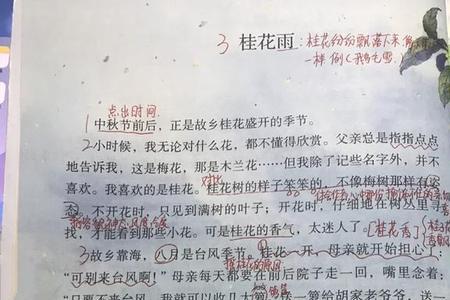 3 桂花雨：桂花纷纷飘落下来像雨
一样 例（鹅毛雪）
点出时间
1 中秋节前后，正是故乡桂花盛开的季节。
2 小时候，我无论对什么花，都不懂得欣赏。父亲总是指指点点
地告诉我，这是梅花，那是木兰花……但我除了记些名字外，并不
对比
喜欢。我喜欢的是桂花。桂花树的样子笨笨的，不像梅树那样有姿
态。不开花时，只见到满树的叶子；开花时，仔细地在树丛里寻
找，才能看到那些小花。可是桂花的香气，太迷人了。[桂花香]
3 故乡靠海，八月是台风季节。桂花一开，母亲就开始担心：
“可别来台风啊！”母亲每天都要在前后院子走一回，嘴里念着：
“只要不来台风，我就可以收几大箩。送一箩给胡家老爷爷，送一